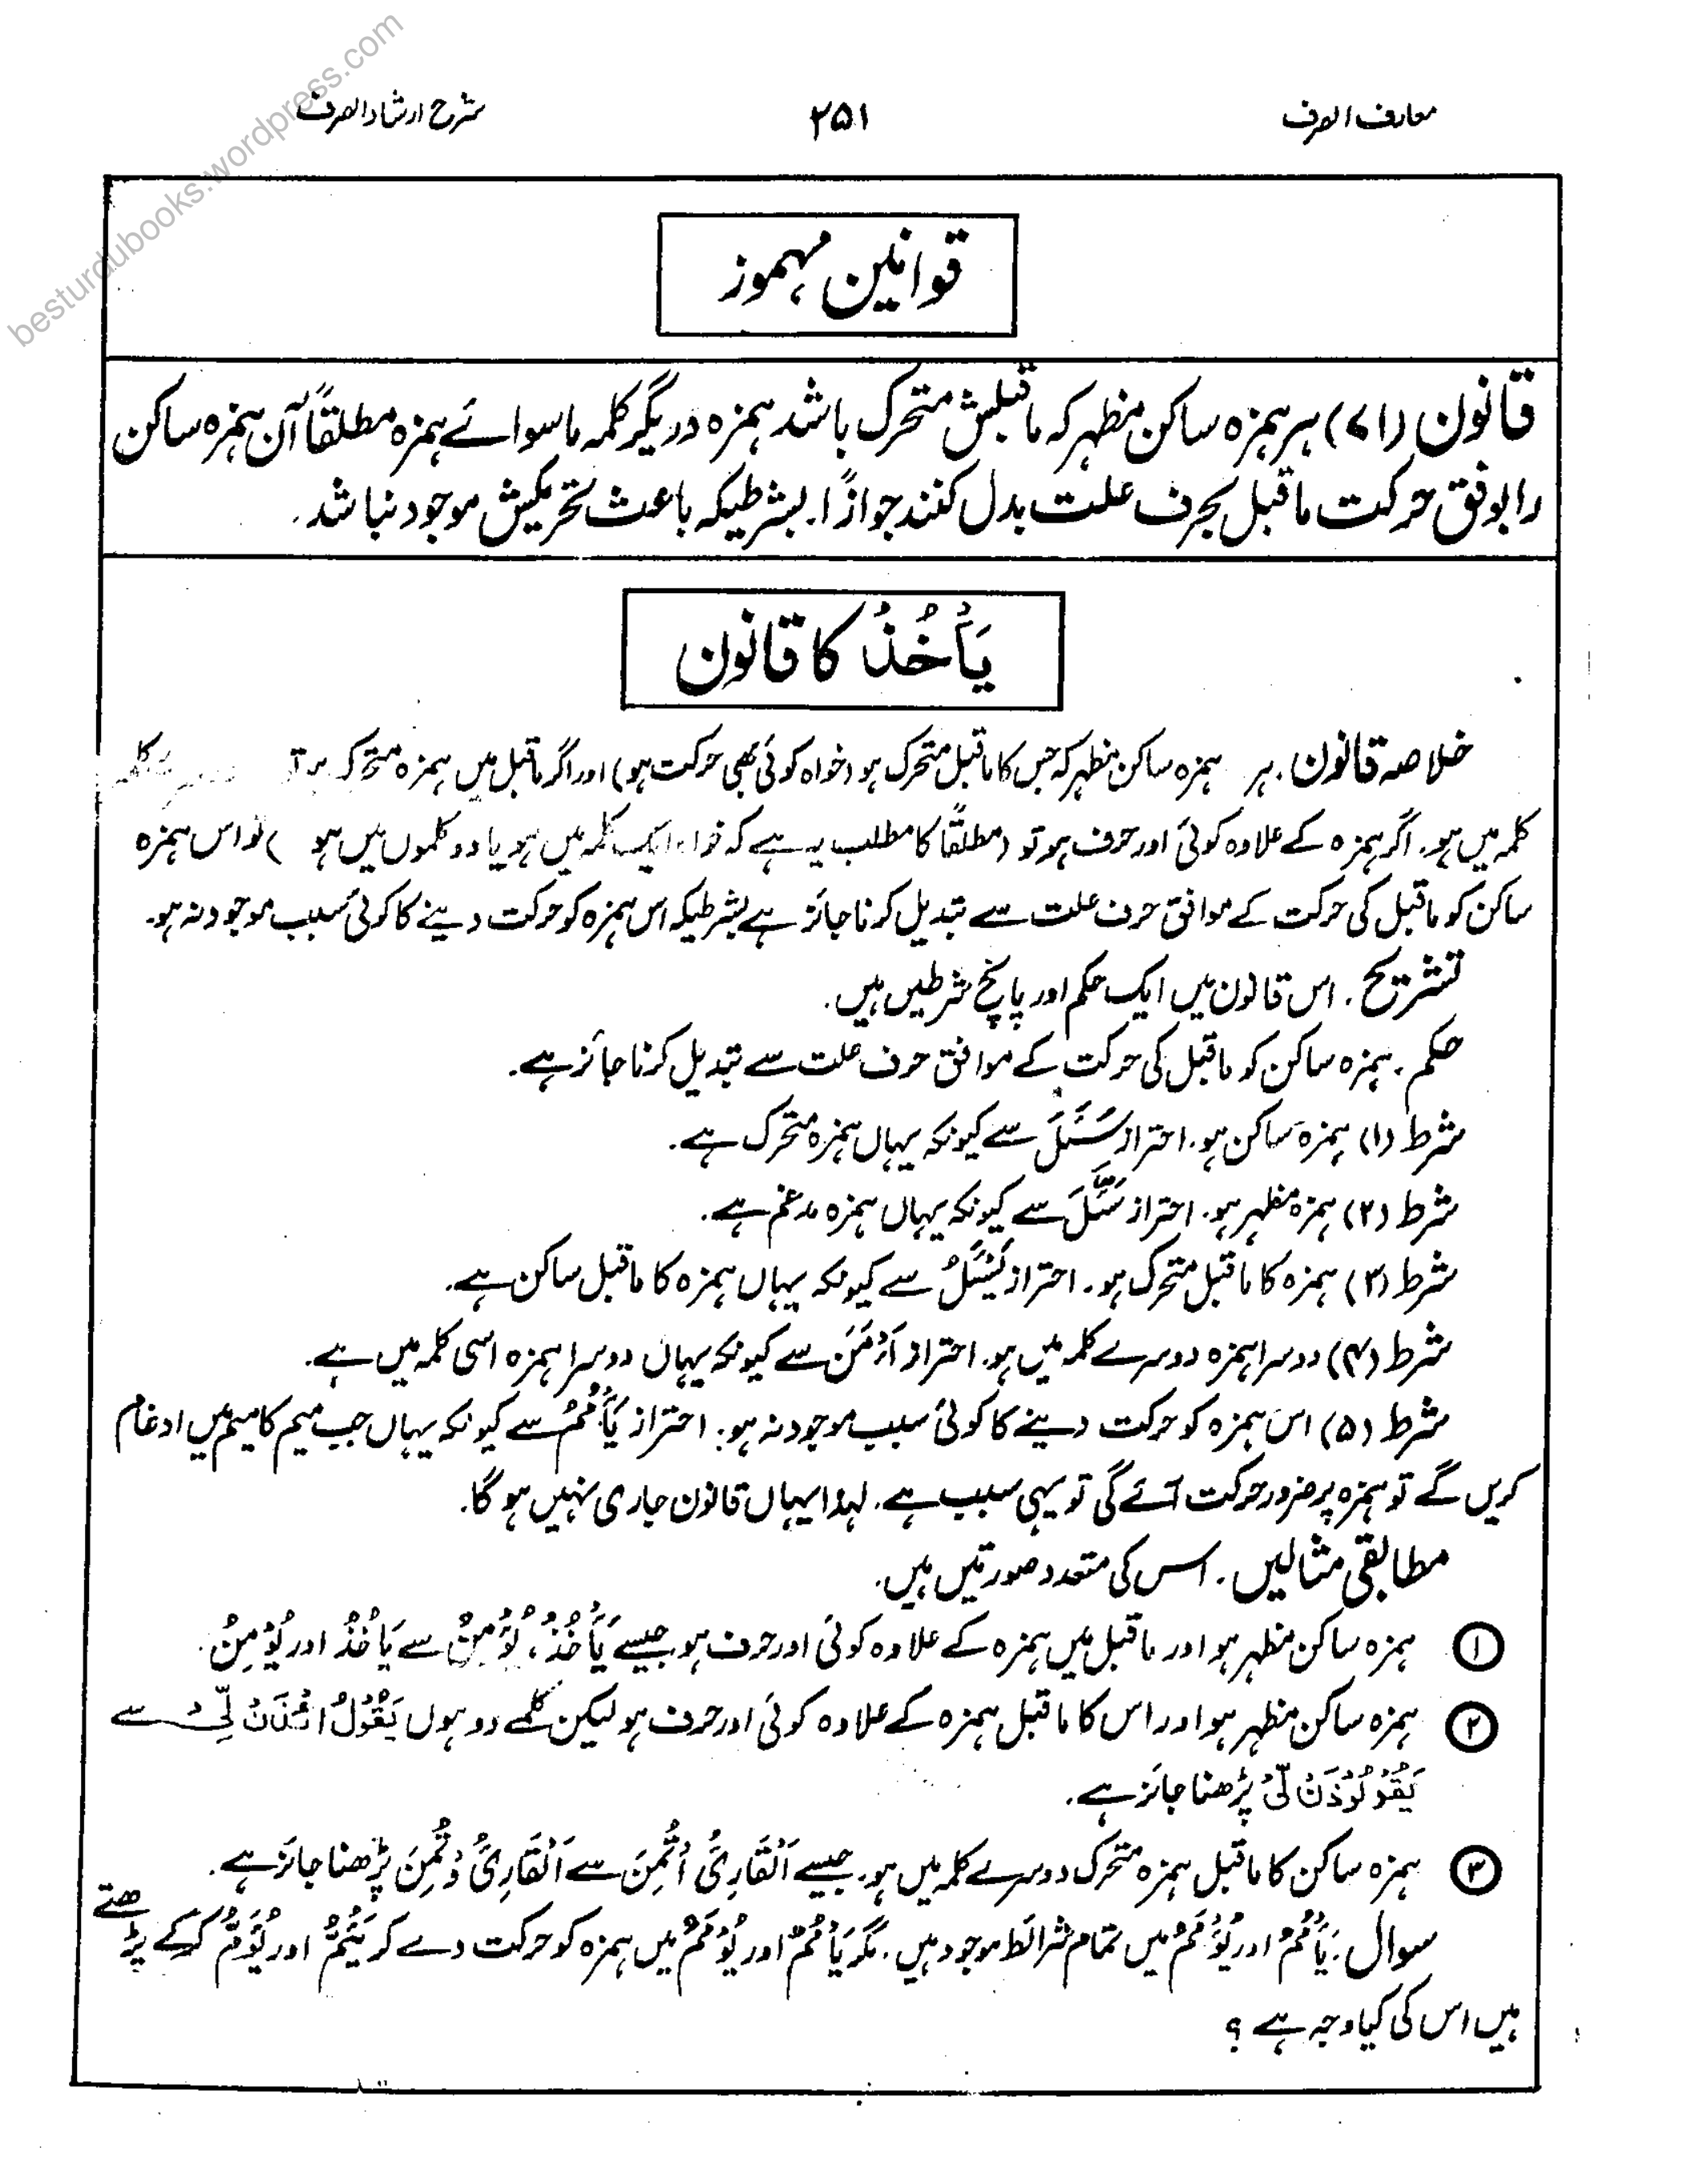 معارف الصرف
۲۵۱
شرح ارشاد الصرف
besturdubooks.wordpress.com
قوانین مہموز
قانون (۷۱) ہر ہمزہ ساکن مظہر کہ ماقبلش متحرک باشد ہمزہ در یگر کلمہ ماسوائے ہمزہ مطلقاً آن ہمزہ ساکن
را بوفق حرکت ماقبل بحرف علت بدل کنند جوازًا. بشرطیکہ باعث تحریکش موجود نباشد.
یَأْخُذُ کا قانون
خلاصہ قانون. ہر ہمزہ ساکن مظہر کہ جس کا ماقبل متحرک ہو (خواہ کوئی بھی حرکت ہو) اور اگر ماقبل میں ہمزہ متحرک ہو تو کلمہ
کلمہ میں ہو. اگر ہمزہ کے علاوہ کوئی اور حرف ہو تو (مطلقًا کا مطلب یہ ہے کہ خواہ ایک کلمہ میں ہو یا دو کلموں میں ہو) تو اس ہمزہ
ساکن کو ماقبل کی حرکت کے موافق حرف علت سے تبدیل کرنا جائز ہے بشرطیکہ اس ہمزہ کو حرکت دینے کا کوئی سبب موجود نہ ہو.
تشریح. اس قانون میں ایک حکم اور پانچ شرطیں ہیں.
حکم. ہمزہ ساکن کو ماقبل کی حرکت کے موافق حرف علت سے تبدیل کرنا جائز ہے.
شرط (۱) ہمزہ ساکن ہو. احتراز سَئَلَ سے کیونکہ یہاں ہمزہ متحرک ہے.
شرط (۲) ہمزہ مظہر ہو. احتراز سَئَّلَ سے کیونکہ یہاں ہمزہ مدغم ہے.
شرط (۳) ہمزہ کا ماقبل متحرک ہو. احتراز یَسْئَلُ سے کیونکہ یہاں ہمزہ کا ماقبل ساکن ہے.
شرط (۴) دوسرا ہمزہ دوسرے کلمہ میں ہو. احتراز أَءْمَنَ سے کیونکہ یہاں دوسرا ہمزہ اسی کلمہ میں ہے.
شرط (۵) اس ہمزہ کو حرکت دینے کا کوئی سبب موجود نہ ہو. احتراز یَأْمُمُ سے کیونکہ یہاں جب میم کا میم میں ادغام
کریں گے تو ہمزہ پر ضرور حرکت آئے گی تو یہی سبب ہے. لہذا یہاں قانون جاری نہیں ہو گا.
مطابقی مثالیں. اس کی متعدد صورتیں ہیں.
① ہمزہ ساکن مظہر ہو اور ماقبل میں ہمزہ کے علاوہ کوئی اور حرف ہو جیسے یَأْخُذُ، یُؤْمِنُ سے یَاخُذُ اور یُوْمِنُ.
② ہمزہ ساکن مظہر ہو اور اس کا ماقبل ہمزہ کے علاوہ کوئی اور حرف ہو لیکن کلمے دو ہوں یَقُوْلُ ائْذَنْ لِّیْ سے
یَقُوْلُوْذَنْ لِّیْ پڑھنا جائز ہے.
③ ہمزہ ساکن کا ماقبل ہمزہ متحرک دوسرے کلمہ میں ہو. جیسے اَلْقَارِیُٔ اُتُمِنَ سے اَلْقَارِیُٔ وْتُمِنَ پڑھنا جائز ہے.
سوال: یَأْمُمُ اور یُؤْمَمُ میں تمام شرائط موجود ہیں. مگر یَأْمُمُ اور یُؤْمَمُ میں ہمزہ کو حرکت دے کر یَئُمُّ اور یُؤَمُّ کر کے پڑھتے
ہیں اس کی کیا وجہ ہے ؟